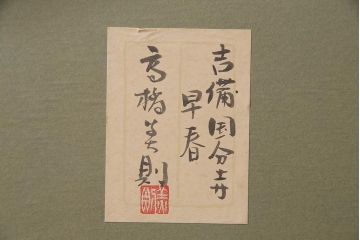 吉備国分寺
早春
高橋義則